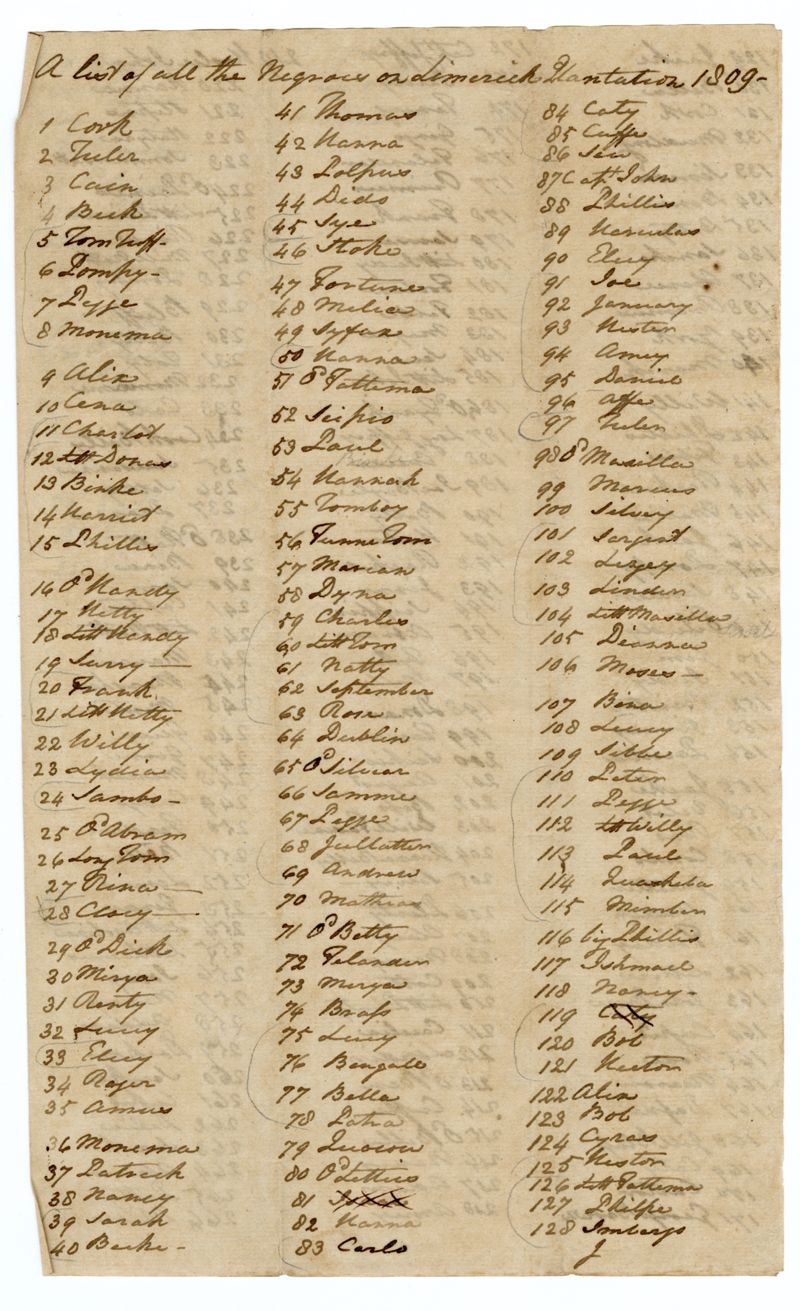 A list of all the Negroes on Limerick Plantation 1809-
1 Cook
2 Tuler
3 Cain
4 Beck
5 Tom Tuff-
6 Pompy-
7 Pegge
8 Monema
9 Alix
10 Cena
11 Charlot
12 Litt Donas
13 Binke
14 Harriet
15 Phillis
16 Od Handy
17 Hetty
18 Litt Handy
19 Surry-
20 Frank
21 Litt Hetty
22 Willy
23 Lydia
24 Sambo-
25 Od Abram
26 Long Tom
27 Rina-
28 Clocy-
29 Od Dick
30 Mirya
31 Resty
32 Lucy
33 Elcy
34 Roger
35 Amus
36 Monema
37 Patrick
38 Nancy
39 Sarah
40 Becke-
41 Thomas
42 Hanna
43 Polpus
44 Dido
45 Sye
46 Stoke
47 Fortune
48 Melia
49 Syfax
50 Hanna
51 Od Fattema
52 Scipio
53 Paul
54 Hannah
55 Tomboy
56 Funne Tom
57 Marian
58 Dyna
59 Charles
60 Litt Tom
61 Natty
62 September
63 Rose
64 Dublin
65 Od Silvear
66 Samme
67 Pegge
68 Jullatter
69 Andrew
70 Mathias
71 Od Betty
72 Felander
73 Merya
74 Brass
75 Lucy
76 Bengale
77 Bella
78 Patra
79 Quacou
80 Od Lettice
81
82 Hanna
83 Carlo
84 Caty
85 Cuffe
86 Sue
87 Capt John
88 Phillis
89 Harculas
90 Elcey
91 Joe
92 January
93 Hester
94 Amey
95 Daniel
96 Affe
97 Tuler
98 Od Masilla
99 Marcus
100 Silvey
101 Sargent
102 Lizey
103 Linder
104 Litt Masilla
105 Dianna
106 Moses-
107 Bina
108 Lucey
109 Sibbe
110 Peter
111 Pegge
112 Litt Willy
113 Paul
114 Quasheba
115 Mimber
116 big Phillis
117 Ishmael
118 Nancy-
119 Caty
120 Bob
121 Hector
122 Alix
123 Bob
124 Cyras
125 Nestor
126 Litt Fattema
127 Philpe
128 Imbarys